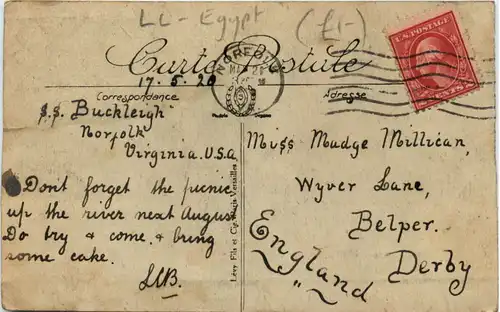 LL - Egypt (£1-)
Carte Postale
U.S. POSTAGE
Correspondance
Adresse
17.5.20
s.s. Buckleigh
Norfolk
Virginia. U.S.A
Don't forget the picnic
up the river next August
Do try & come. & bring
some cake.
Lévy Fils et Cie, Paris-Versailles
Miss Madge Millican,
Wyver Lane,
Belper.
Derby
England